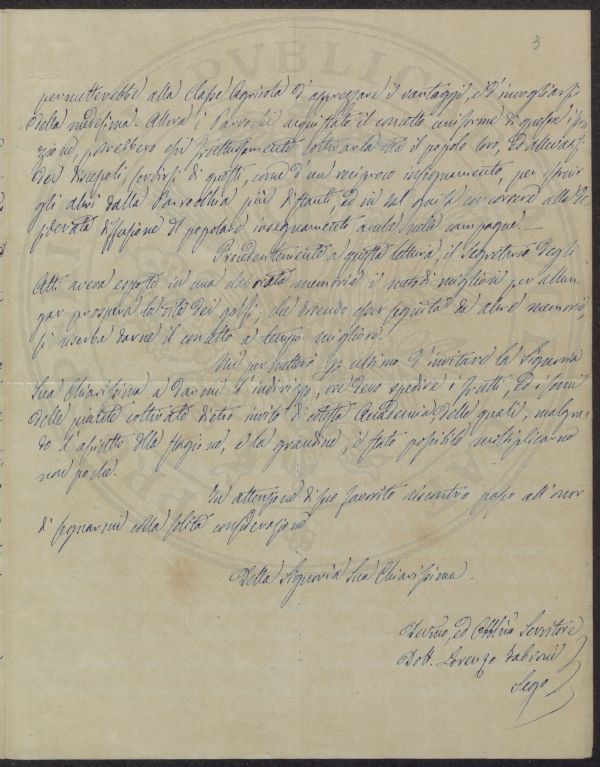 3
permetterebbe alla Classe Agricola d'apprezzare i vantaggi, ed invogliarsi
della medesima. Allora i Parochi acquistato il corretto uniforme di questa istru
zione, potrebbero essi fruttuosamente coltivarla tra il popolo loro, ed
dei discepoli, servirsi di questi, come d'un reciproco insegnamento, per istruir
gli altri dalla Parrocchia più distanti, ed in tal guisa concorrere alla de
siderata diffusione del popolare insegnamento nelle campagne.
Precedentemente a questa lettura il Segretario degli
Atti aveva esposto in una elaborata memoria i metodi migliori per allun
gar prospera la vita dei gelsi; che dovendo esser seguita da altre memorie,
si riserba darne il concetto a tempo migliore.
Mi permetterò per ultimo d'invitare la Signoria
Sua Chiarissima a darmi l'indirizzo, ove devo spedire i frutti, ed i semi
delle piante coltivate dietro invito di codesta Accademia, delle quali, malgra-
do l'aspetto della stagione, e la grandine, è stato possibile moltiplicarne
non poche.
In attenzione di suo favorito riscontro passo all'onor
di segnarmi colla solita considerazione
Della Signoria Sua Chiarissima.
Devmo, ed Obblmo Servitore
Dott. Lorenzo
Sego
PVBLIC